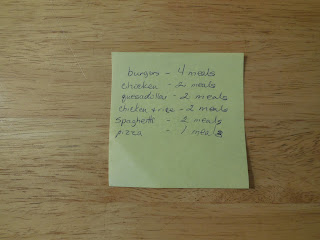 burgers - 4 meals
chicken - 2 meals
quesadillas - 2 meals
chicken + rice - 2 meals
spaghetti - 2 meals
pizza - 1 meals